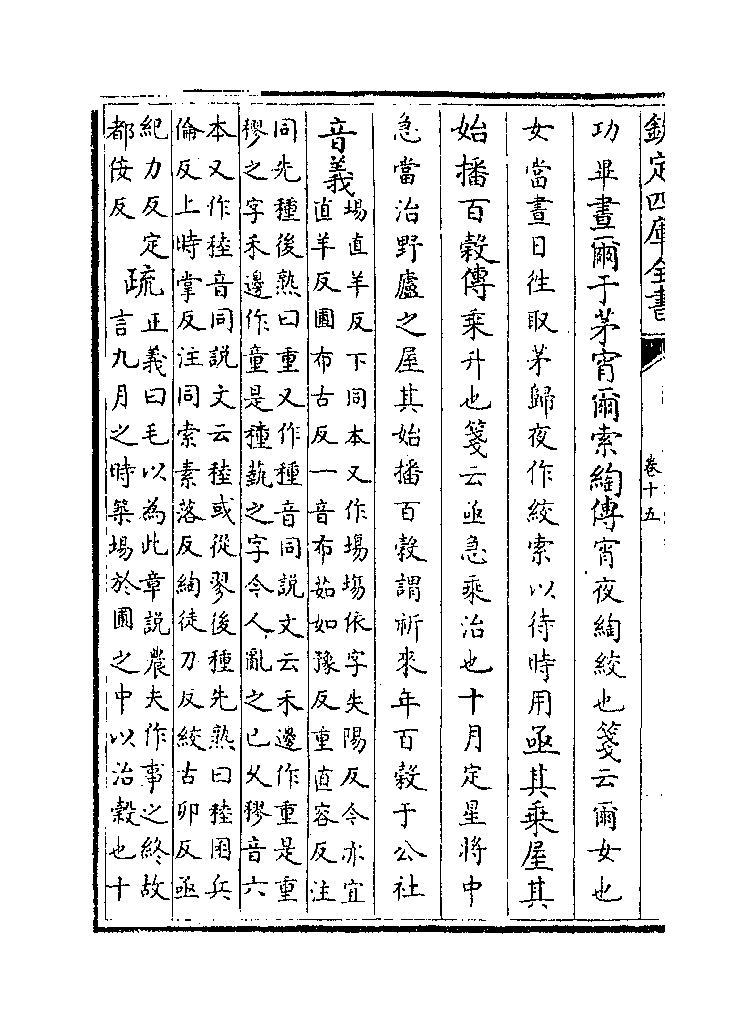 欽定四庫全書
卷十五
功畢晝爾于茅宵爾索綯傳宵夜綯絞也箋云爾女也
女當晝日往取茅歸夜作絞索以待時用亟其乗屋其
始播百穀傳乗升也箋云亟急乗治也十月定星将中
急當治野廬之屋其始播百穀謂祈來年百穀于公社
音義
場直羊反下同本又作塲塲依字失陽反今亦宜
直羊反圃布古反一音布茹如豫反重直容反注
同先種後熟曰重又作種音同説文云禾邊作重是重
穋之字禾邊作童是種蓺之字今人亂之已乆穋音六
本又作稑音同説文云稑或從翏後種先熟曰稑囷丘
倫反上時掌反注同索素落反綯徒刀反絞古卯反亟
紀力反定
都佞反
疏
正義曰毛以為此章説農夫作事之終故
言九月之時築場於圃之中以治穀也十